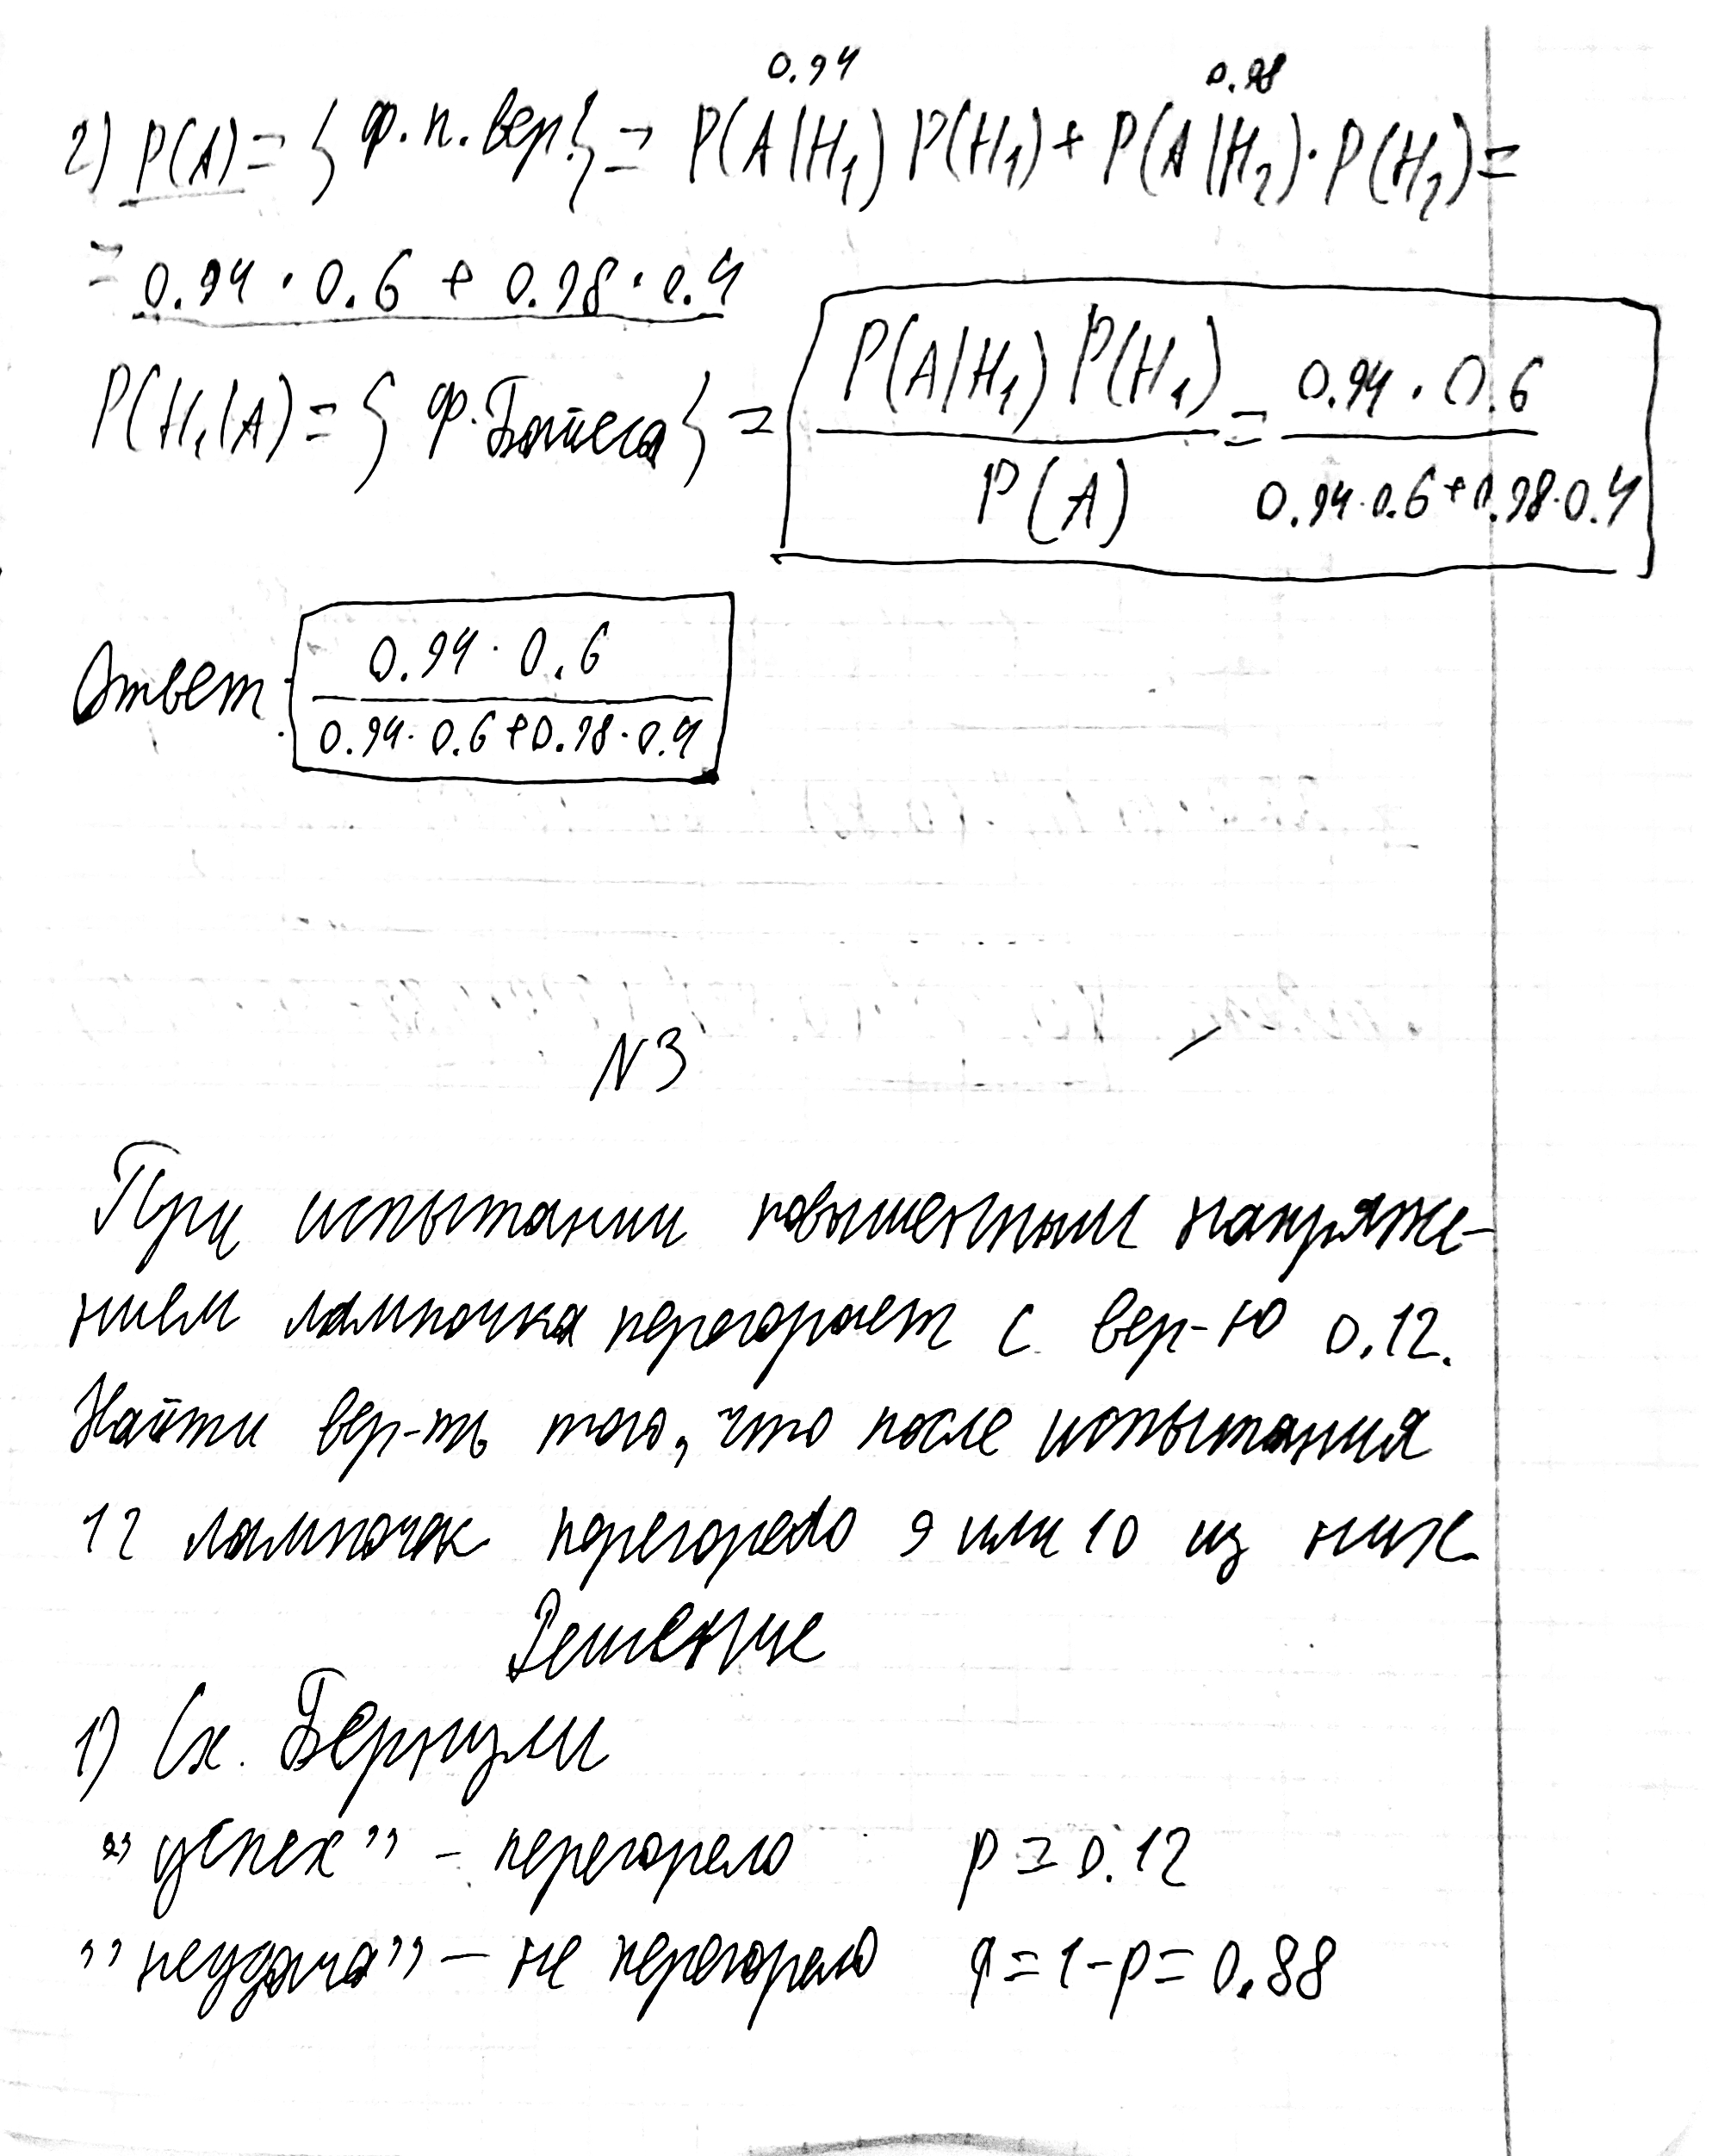 0.94 0.98
2) P(A) = { ф. п. вер. } = P(A|H₁) P(H₁) + P(A|H₂) · P(H₂) =
= 0.94 · 0.6 + 0.98 · 0.4
P(H₁|A) = { ф. Байеса } = P(A|H₁) P(H₁) / P(A) = 0.94 · 0.6 / 0.94 · 0.6 + 0.98 · 0.4
Ответ: 0.94 · 0.6 / 0.94 · 0.6 + 0.98 · 0.4
N3
При испытании повышенным напряже-
нием лампочка перегорает с вер-ю 0.12.
Найти вер-ть того, что после испытания
12 лампочек перегорело 9 или 10 из них.
Решение
1) Сх. Бернули
"успех" - перегорело p = 0.12
"неудача" - не перегорело q = 1 - p = 0.88